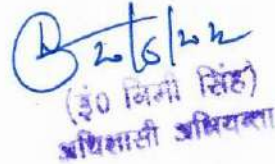 20/6/22
(इं0 निमी सिंह)
अधिशासी अभियन्ता